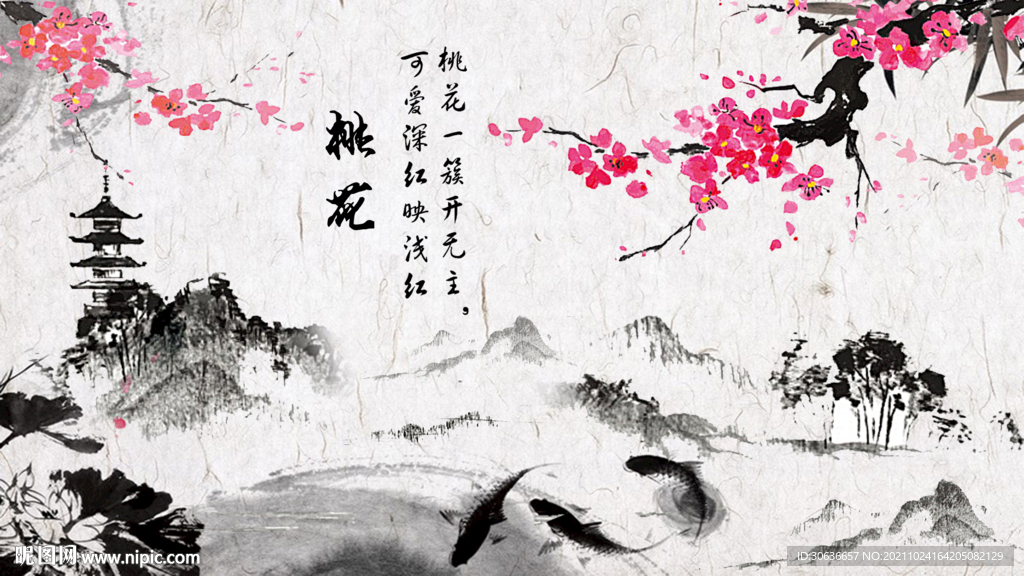 桃花一簇开无主，
可爱深红映浅红
桃花
昵图网 www.nipic.com
ID:30636657 NO:20211024164205082129